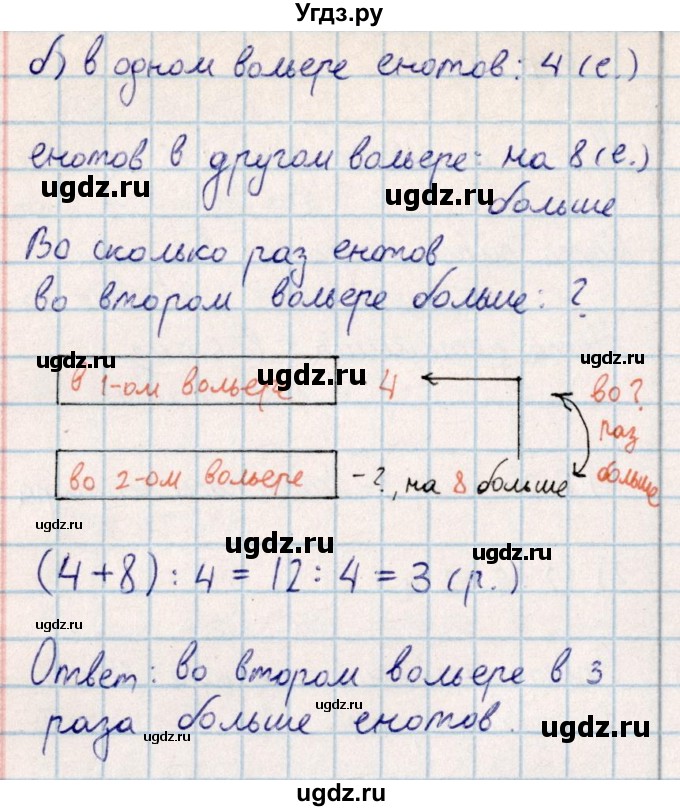 Угдз.ру
б) в одном вольере енотов: 4 (е.)
енотов в другом вольере: на 8 (е.)
ugdz.ru ugdz.ru
больше
Во сколько раз енотов
ugdz.ru
во втором вольере больше: ?
ugdz.ru ugdz.ru ugdz.ru
в 1-ом вольере 4 во ?
раз
во 2-ом вольере - ?, на 8 больше больше
ugdz.ru ugdz.ru ugdz.ru
(4+8) : 4 = 12 : 4 = 3 (р.)
ugdz.ru ugdz.ru
Ответ: во втором вольере в 3
раза больше енотов.
ugdz.ru ugdz.ru
ugdz.ru